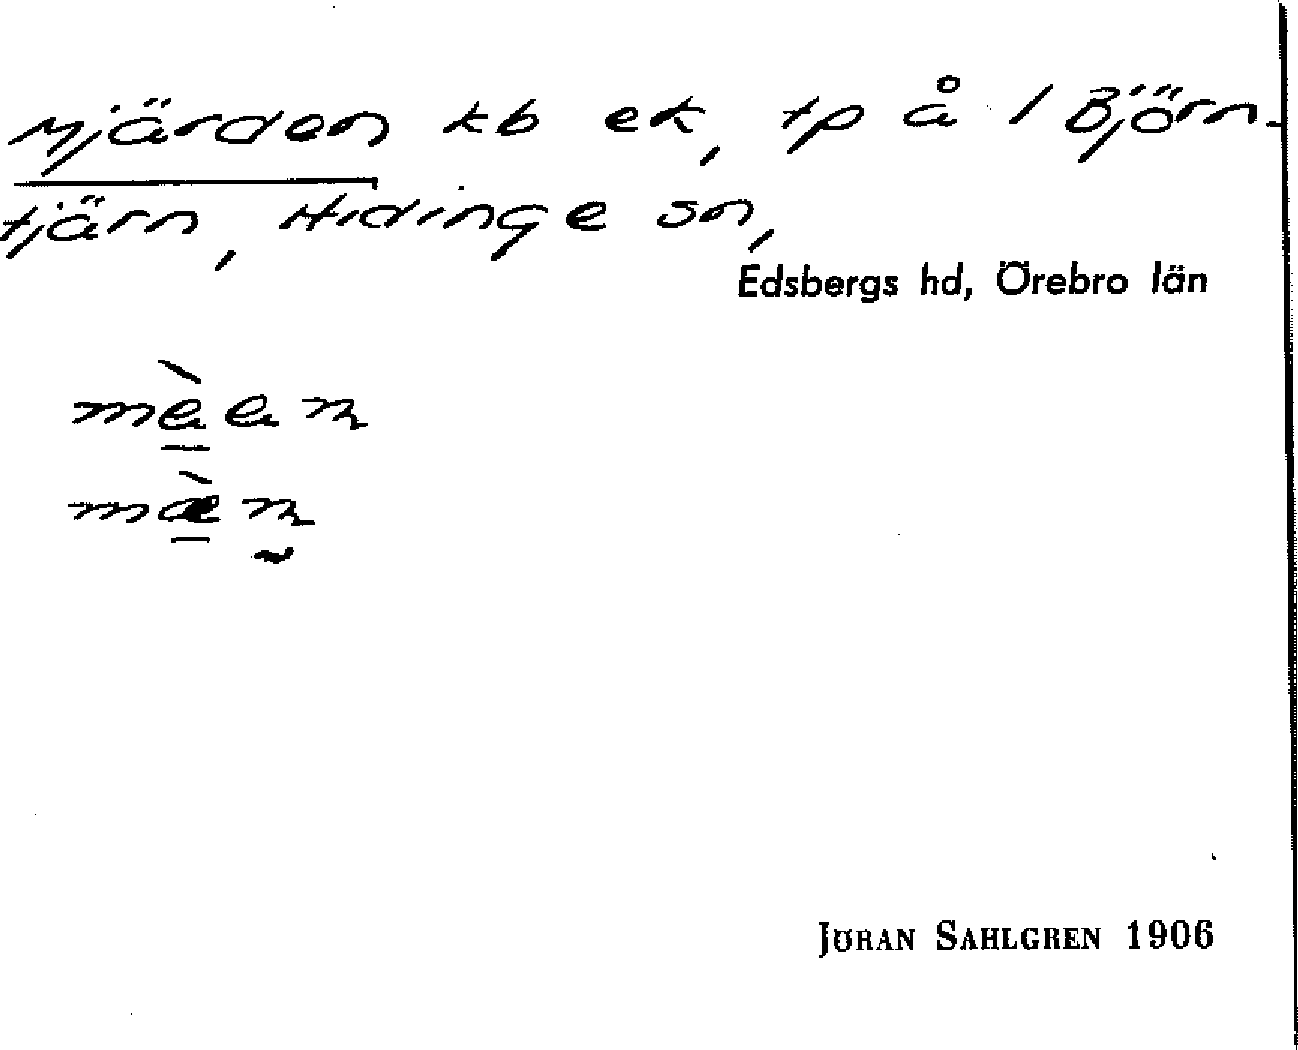 Mjärden kb ek, tp å l Björn-
tjärn, Hidinge sn,
Edsbergs hd, Örebro län
JÖRAN SAHLGREN 1906